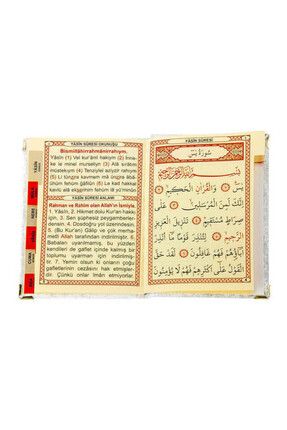 YÂSİN SÛRESİ OKUNUŞU
Bismillâhirrahmânirrahîym.
Yâsîn (1) Vel kur'ânil hakiym (2) İnne-
ke le minel mürseliyn (3) Alâ sırâtın
müstekıym (4) Tenziylel aziyzir rahıym
(5) Li tünzira kavmem mâ ünzira
âbâühüm fehüm ğâfilûn (6) Le kad hakkal
kavlü alâ ekserihim fehüm lâ yü'minûn
YÂSİN SÛRESİ ANLAMI
Rahman ve Rahim olan Allah'ın İsmiyle.
1. Yâsîn, 2. Hikmet dolu Kur'an hakkı
için, 3. Sen elbette peygamberler-
densin. 4. Dosdoğru yol üzerindesin.
5. (Bu Kur'an) Gâlip ve çok merha-
metli Allah tarafından indirilmiştir. 6.
Babaları uyarılmamış, bu yüzden
kendileri de gaflet içinde kalmış bir
toplumu uyarman için indirilmiştir.
7. Yemin olsun ki onların çoğu
gafletlerinin cezasını hak etmişler-
dir. Çünkü onlar İman etmiyorlar.
YÂSİN
CUMA
YÂSİN SÛRESİ
سُورَةُ يٰسٓ
بِسْمِ اللّٰهِ الرَّحْمٰنِ الرَّحِيمِ
يٰسٓ ۞ وَالْقُرْاٰنِ الْحَكِيمِ ۞
اِنَّكَ لَمِنَ الْمُرْسَلِينَ ۞ عَلٰى
صِرَاطٍ مُسْتَقِيمٍ ۞ تَنْزِيلَ الْعَزِيزِ
الرَّحِيمِ ۞ لِتُنْذِرَ قَوْمًا مَٓا اُنْذِرَ
اٰبَٓاؤُهُمْ فَهُمْ غَافِلُونَ ۞ لَقَدْ حَقَّ
الْقَوْلُ عَلٰٓى اَكْثَرِهِمْ فَهُمْ لَا يُؤْمِنُونَ